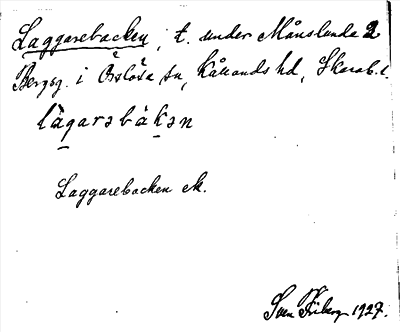 Laggarebacken, t. under Månslunda 2
Bergsg. i Örslösa sn, Kållands hd, Skarab. l.
lagarəbakən
Laggarebacken ek.
Sven Friberg 1927.